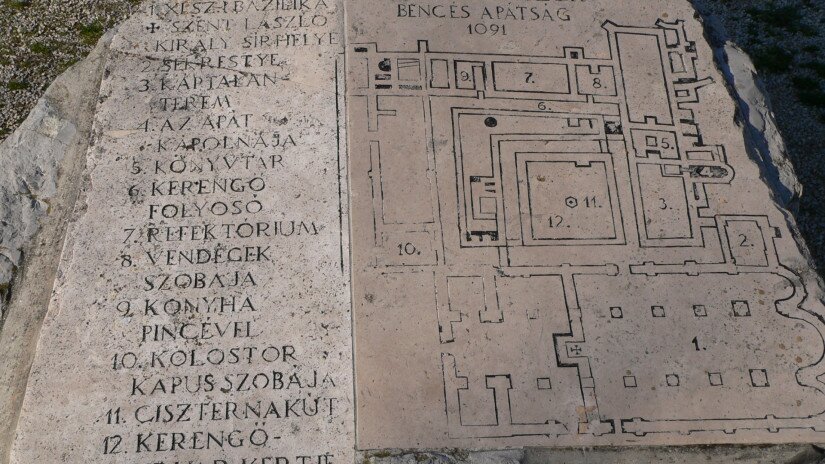 1. BAZILIKA
SZENT LÁSZLÓ
KIRÁLY SÍRHELYE
2. SEKRESTYE
3. KÁPTALAN-
TEREM
4. AZ APÁT
KÁPOLNÁJA
5. KÖNYVTÁR
6. KERENGŐ
FOLYOSÓ
7. REFEKTÓRIUM
8. VENDÉGEK
SZOBÁJA
9. KONYHA
PINCÉVEL
10. KOLOSTOR
KAPUS SZOBÁJA
11. CISZTERNAKÚT
12. KERENGŐ-
KERTJE
BENCÉS APÁTSÁG
1091
9.
7.
8.
6.
5.
11.
12.
3.
10.
2.
1.